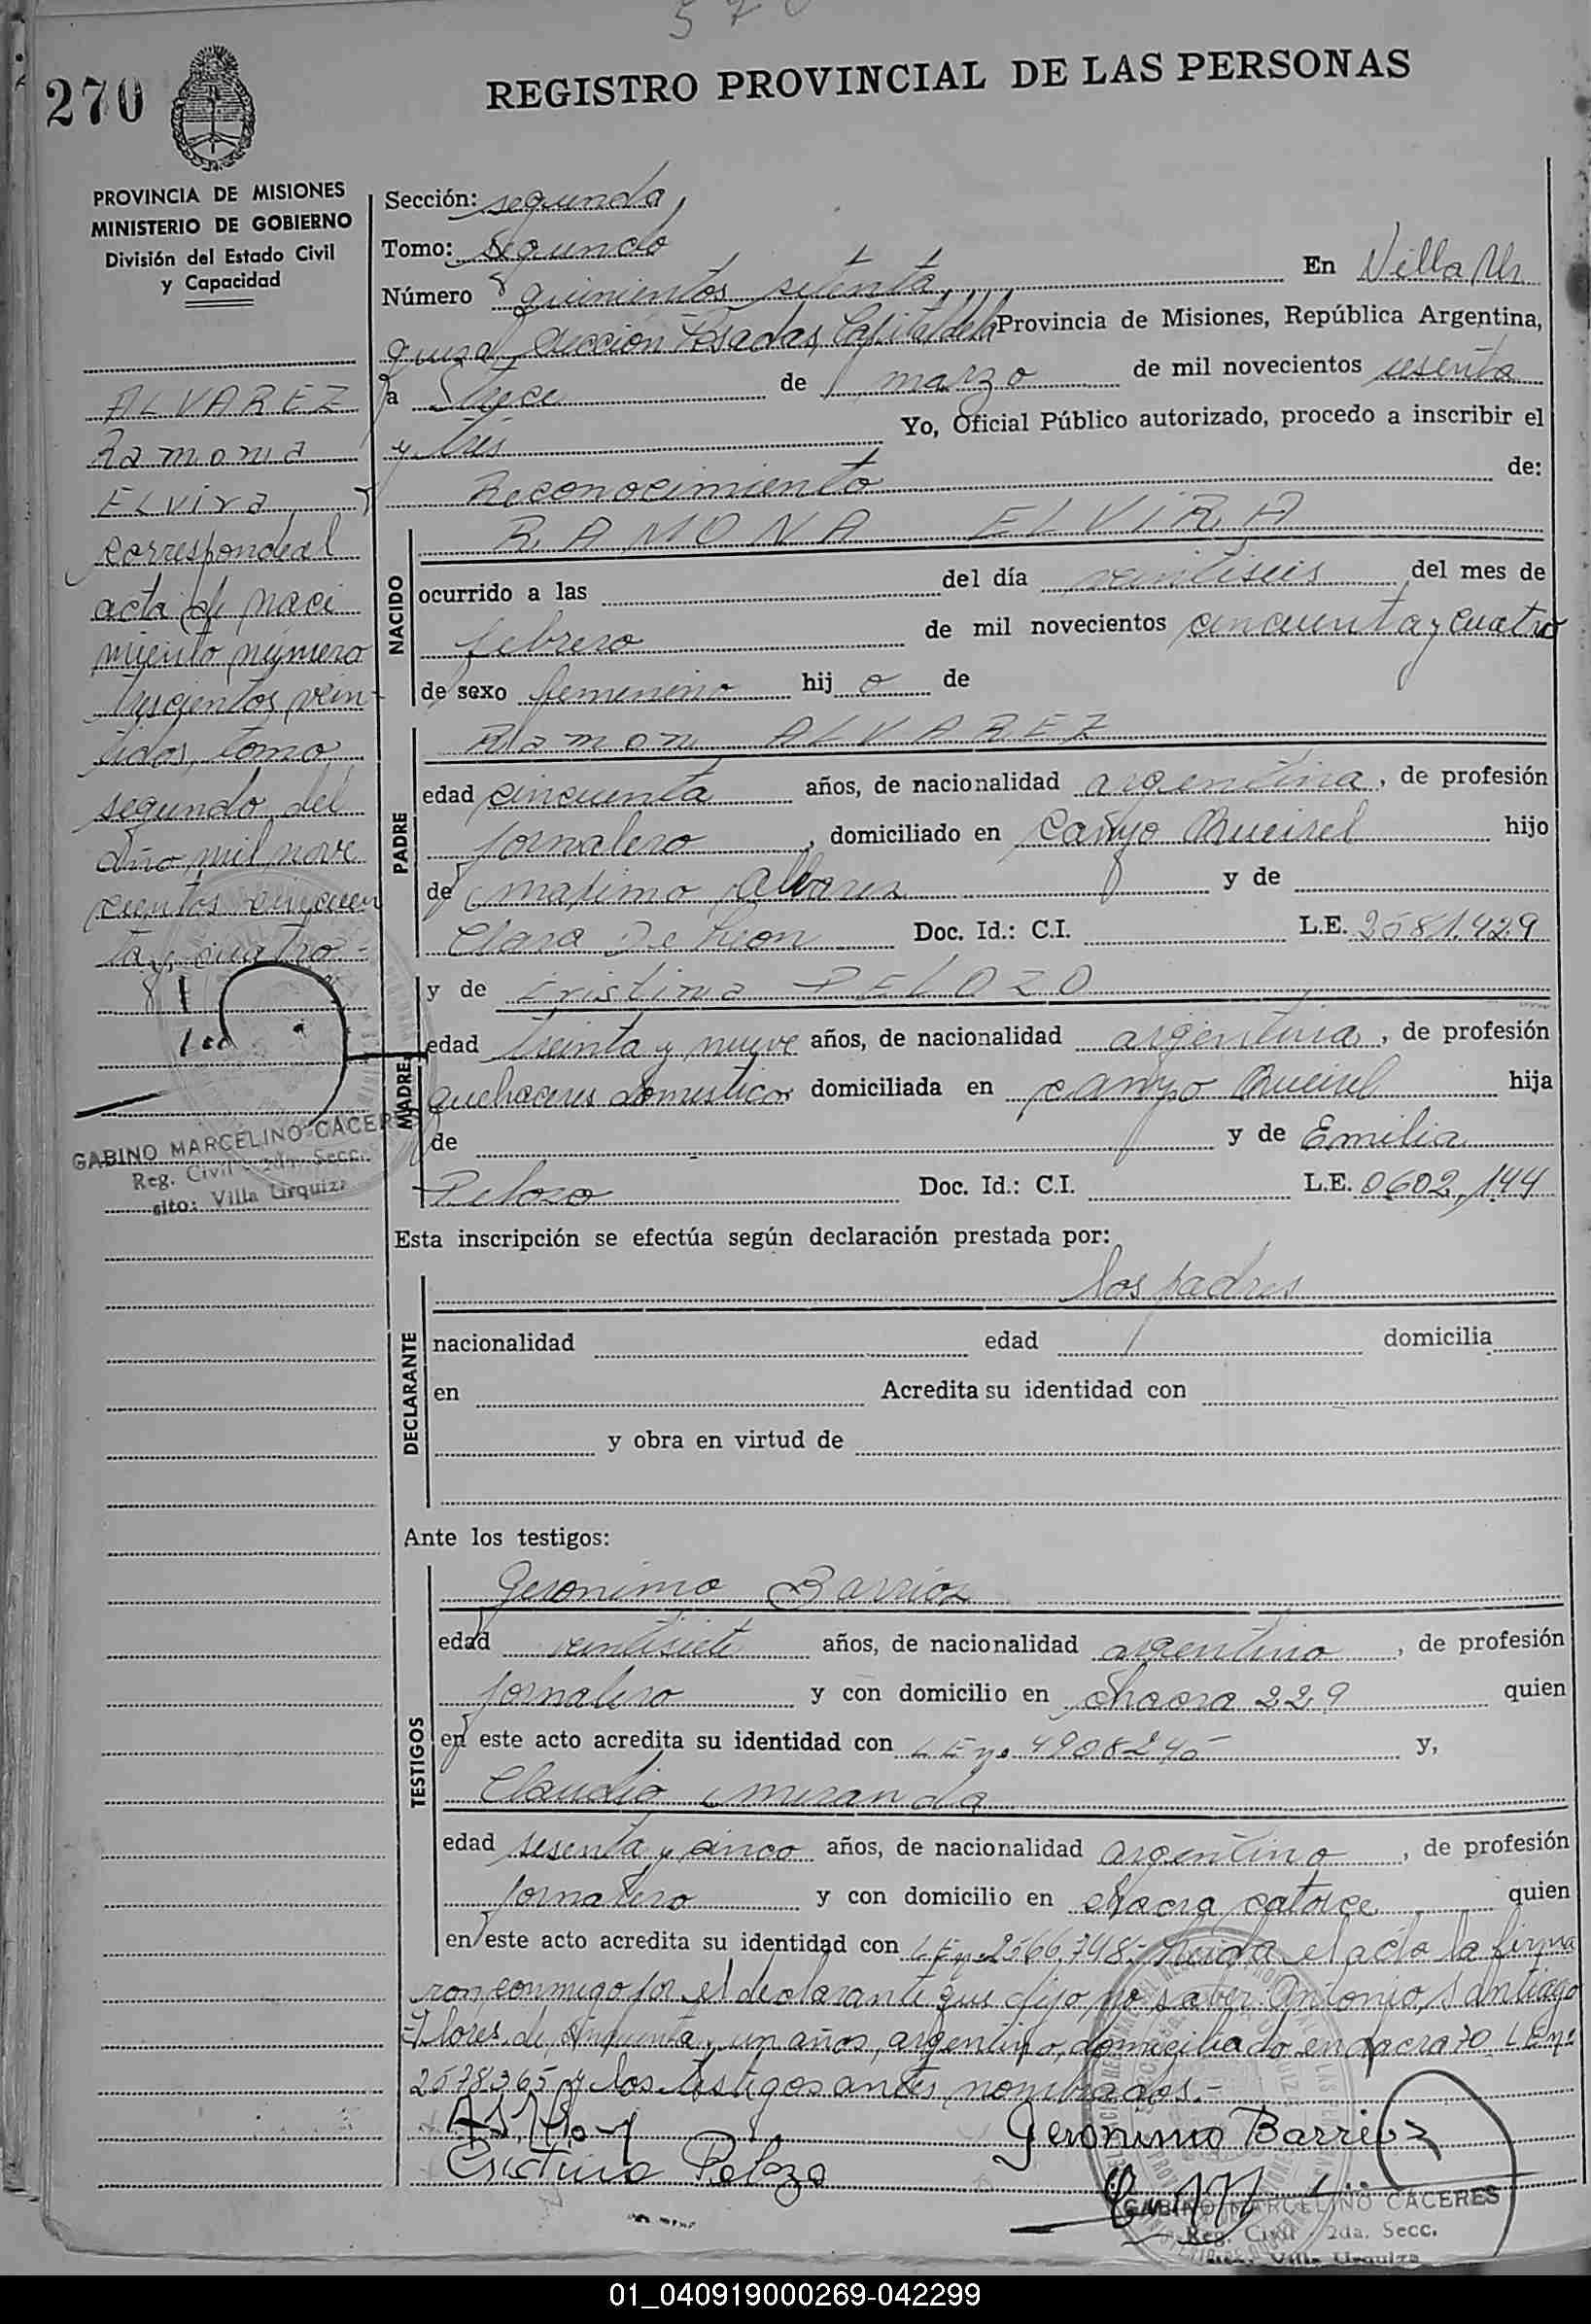 570
270
REGISTRO PROVINCIAL DE LAS PERSONAS
PROVINCIA DE MISIONES
MINISTERIO DE GOBIERNO
División del Estado Civil
y Capacidad
ALVAREZ
Ramona
ELvira
corresponde al
acta de naci
miento número
trescientos vein-
tidos, tomo
segundo del
año mil nove
cientos cincuen
ta y cuatro-
GABINO MARCELINO CACERES
Reg. Civil 2da. Secc.
sito: Villa Urquiza
Sección: segunda
Tomo: segundo
Número quinientos setenta En Villa Ur
quiza, sección Posadas, Capital de la Provincia de Misiones, República Argentina,
a trece de marzo de mil novecientos sesenta
y tres Yo, Oficial Público autorizado, procedo a inscribir el
Reconocimiento de:
NACIDO
RAMONA ELVIRA
ocurrido a las del día veintiseis del mes de
febrero de mil novecientos cincuenta y cuatro
de sexo femenino hij a de
PADRE
Ramon ALVAREZ
edad cincuenta años, de nacionalidad argentina, de profesión
jornalero, domiciliado en Campo hijo
de maximo Alvarez y de
Clara De Leon Doc. Id.: C.I. L.E. 2581.429
MADRE
y de Cristina PELOZO
edad treinta y nueve años, de nacionalidad argentina, de profesión
quehaceres domesticos domiciliada en campo hija
de y de Emilia
Pelozo Doc. Id.: C.I. L.E. 0602,144
Esta inscripción se efectúa según declaración prestada por:
DECLARANTE
los padres
nacionalidad edad domicilia
en Acredita su identidad con
y obra en virtud de
Ante los testigos:
TESTIGOS
Geronimo Barrios
edad veintisiete años, de nacionalidad argentino, de profesión
jornalero y con domicilio en chacra 229 quien
en este acto acredita su identidad con L E no 4908245 y,
Claudio miranda
edad sesenta y cinco años, de nacionalidad argentino, de profesión
jornalero y con domicilio en chacra catorce quien
en este acto acredita su identidad con L E no 2566.748- Leida el acta la firma
ron conmigo por el declarante que dijo no saber Antonio Santiago
Flores de cincuenta y un años, argentino, domiciliado en chacra 70 L E no
2578365 y los testigos antes nombrados.-
Cristina Pelozo
Geronimo Barrios
GABINO MARCELINO CACERES
Reg. Civil 2da. Secc.
sito: Villa Urquiza
01_040919000269-042299